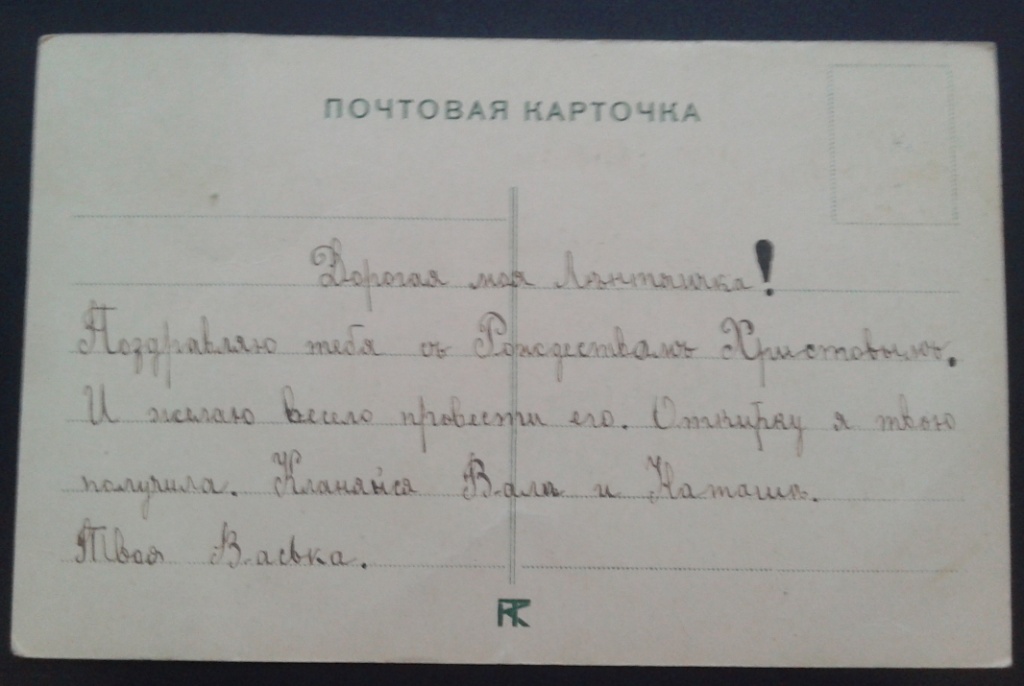 ПОЧТОВАЯ КАРТОЧКА
Дорогая моя !
Поздравляю тебя съ Рождествамъ Христовымъ.
И желаю весело провести его. я твою
получила. Кланяйся Валѣ и Наташѣ.
Твоя Васька.